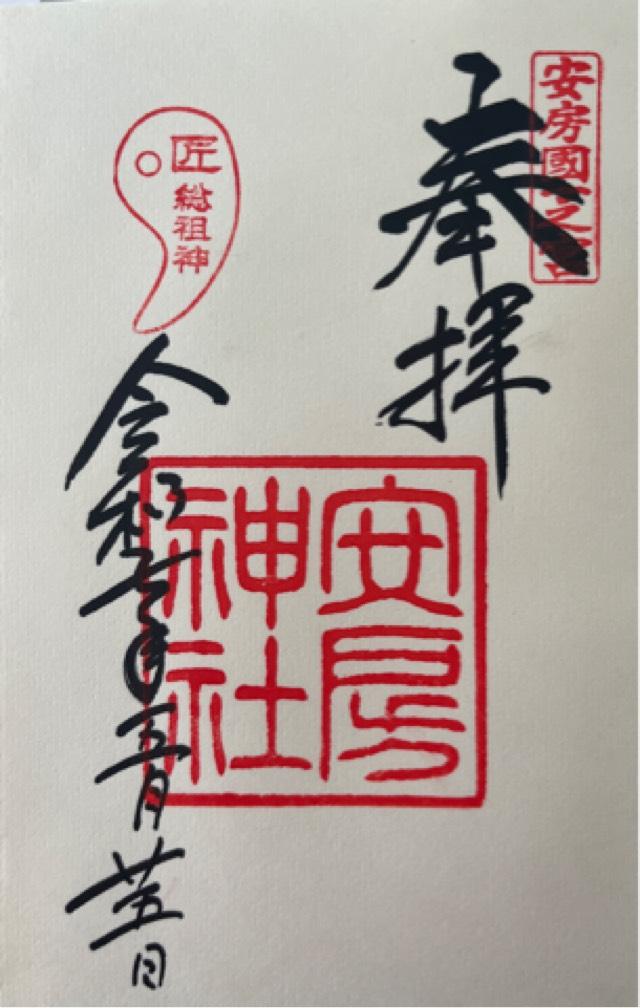 安房國一之宮
奉拝
安房
神社
匠
総祖神
令和七年五月廿五日